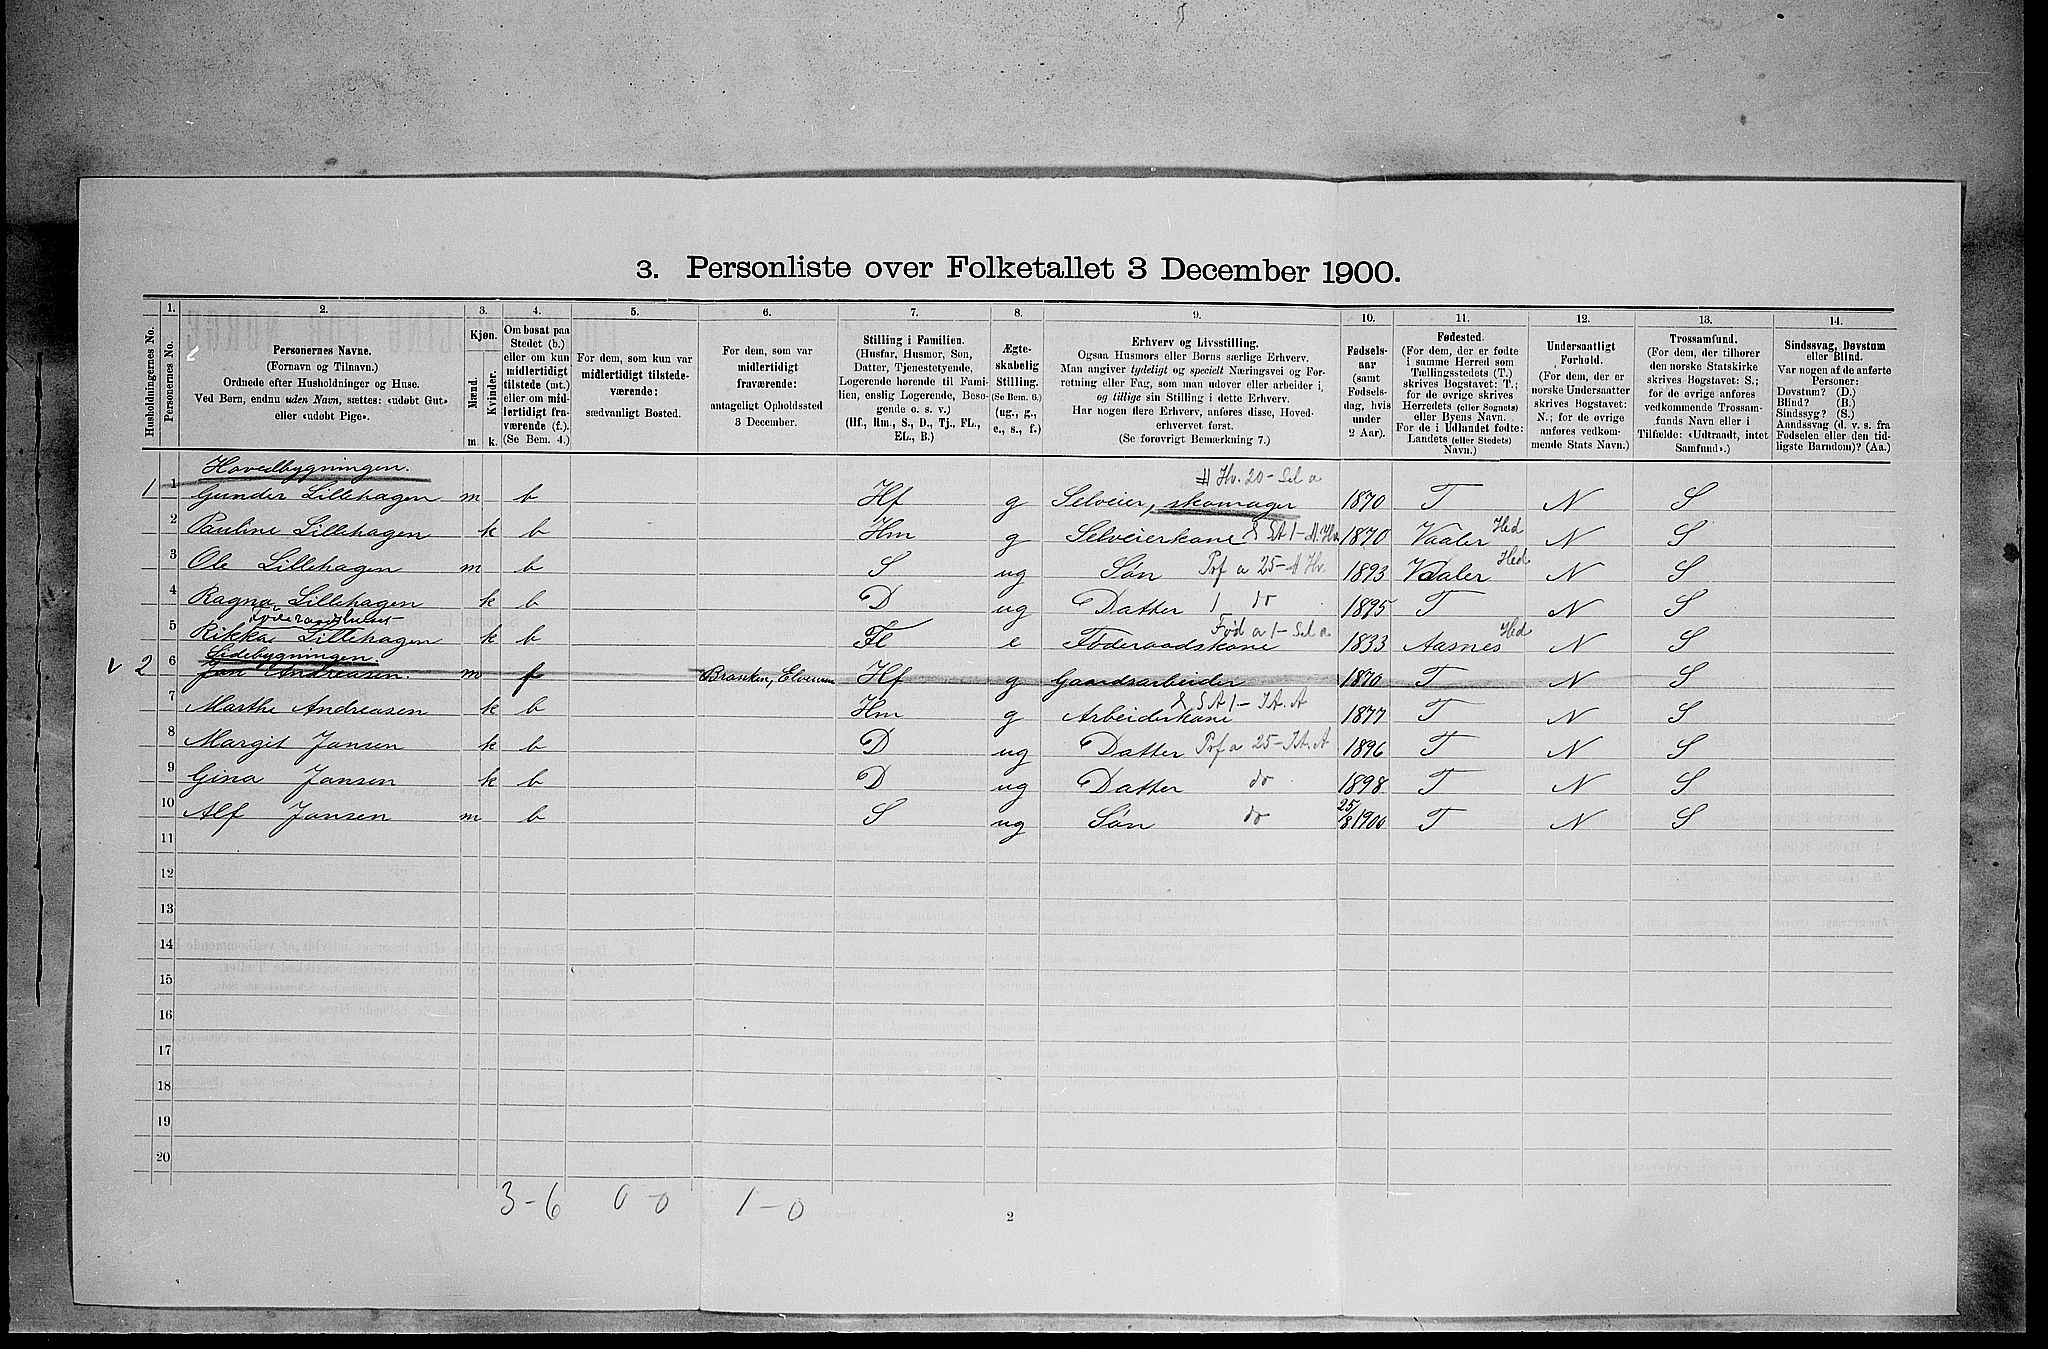 3. Personliste over Folketallet 3 December 1900.
1. 2. 3. 4. 5. 6. 7. 8. 9. 10. 11. 12. 13. 14.
Husholdningernes No.
Personernes No.
Personernes Navne.
(Fornavn og Tilnavn.)
Ordnede efter Husholdninger og Huse.
Ved Børn, endnu uden Navn, sættes: «udøbt Gut»
eller «udøbt Pige».
Kjøn.
Mænd. Kvinder.
m. k.
Om bosat paa
Stedet (b.)
eller om kun
midlertidigt
tilstede (mt.)
eller om mid-
lertidigt fra-
værende (f.).
(Se Bem. 4.)
For dem, som kun var
midlertidigt tilstede-
værende:
sædvanligt Bosted.
For dem, som var
midlertidigt
fraværende:
antageligt Opholdssted
3 December.
Stilling i Familien.
(Husfar, Husmor, Søn,
Datter, Tjenestetyende,
Logerende hørende til Fami-
lien, enslig Logerende, Besø-
gende o. s. v.)
(Hf., Hm., S., D., Tj., FL.,
EL., B.)
Ægte-
skabelig
Stilling.
(Se Bem. 6.)
(ug., g.,
e., s., f.)
Erhverv og Livsstilling.
Ogsaa Husmors eller Børns særlige Erhverv.
Man angiver tydeligt og specielt Næringsvei og For-
retning eller Fag, som man udover eller arbeider i,
og tillige sin Stilling i dette Erhverv.
Har nogen flere Erhverv, anføres disse, Hoved-
erhvervet først.
(Se forøvrigt Bemærkning 7.)
Fødsels-
aar
(samt
Fødsels-
dag, hvis
under
2 Aar).
Fødested.
(For dem, der er fødte
i samme Herred som
Tællingsstedets (T.)
skrives Bogstavet: T.;
for de øvrige skrives
Herredets (eller Sognets)
eller Byens Navn.
For de i Udlandet fødte:
Landets (eller Stedets)
Navn.)
Undersaatligt
Forhold.
(For dem, der er
norske Undersaatter
skrives Bogstavet:
N.; for de øvrige
anføres vedkom-
mende Stats Navn.)
Trossamfund.
(For dem, der tilhører
den norske Statskirke
skrives Bogstavet: S.;
for de øvrige anføres
vedkommende Trossam-
funds Navn eller i
Tilfælde: «Udtraadt, intet
Samfund».)
Sindssvag, Døvstum
eller Blind.
Var nogen af de anførte
Personer:
Døvstum? (D.)
Blind? (B.)
Sindssyg? (S.)
Aandssvag (d. v. s. fra
Fødselen eller den tid-
ligste Barndom)? (Aa.)
Hovedbygningen.
1 1 Gunder Lillehagen m b Hf g Selveier, skomager Hv. 20 - Sel a 1870 T N S
2 Pauline Lillehagen k b Hm g Selveierkone 1870 Vaaler Hed N S
3 Ole Lillehagen m b S ug Søn 1893 Vaaler Hed N S
4 Ragna Lillehagen k b D ug Datter do 1895 T N S
Føderaadshuset
5 Rikka Lillehagen k b Fl e Føderaadskone Fød a 1 - Sel a 1833 Aasnes Hed N S
Sidebygningen.
v 2 6 Jan Andreasen. m f Branken, Elverum Hf g Gaardsarbeider 1870 T N S
7 Marthe Andreasen k b Hm g Arbeiderkone 1877 T N S
8 Margit Jansen k b D ug Datter 1896 T N S
9 Gina Jansen k b D ug Datter do 1898 T N S
10 Alf Jansen m b S ug Søn do 25/8 1900 T N S
11
12
13
14
15
16
17
18
19
20
3-6 0-0 1-0
2